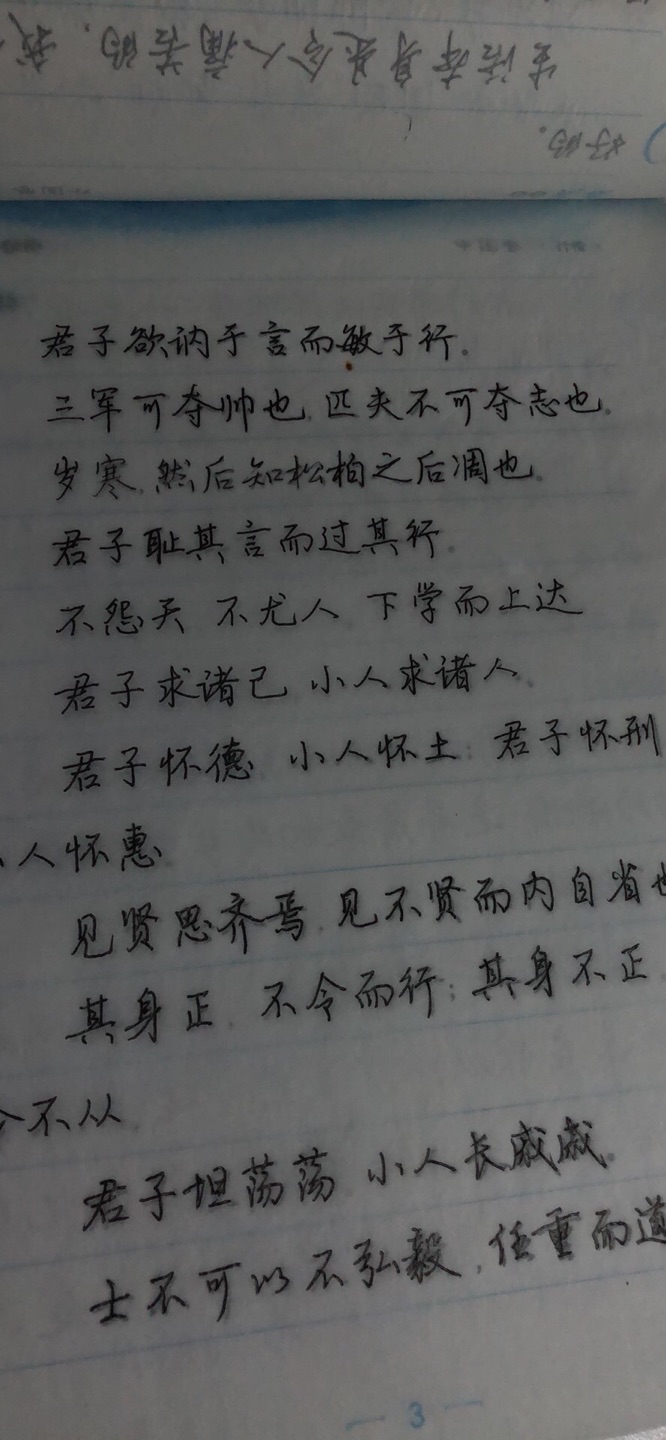 生活本身是令人痛苦的，我
好的。
君子欲讷于言而敏于行。
三军可夺帅也，匹夫不可夺志也。
岁寒，然后知松柏之后凋也。
君子耻其言而过其行。
不怨天，不尤人，下学而上达
君子求诸己，小人求诸人。
君子怀德，小人怀土；君子怀刑
人怀惠
见贤思齐焉，见不贤而内自省也
其身正，不令而行；其身不正
不从
君子坦荡荡，小人长戚戚。
士不可以不弘毅，任重而道
3